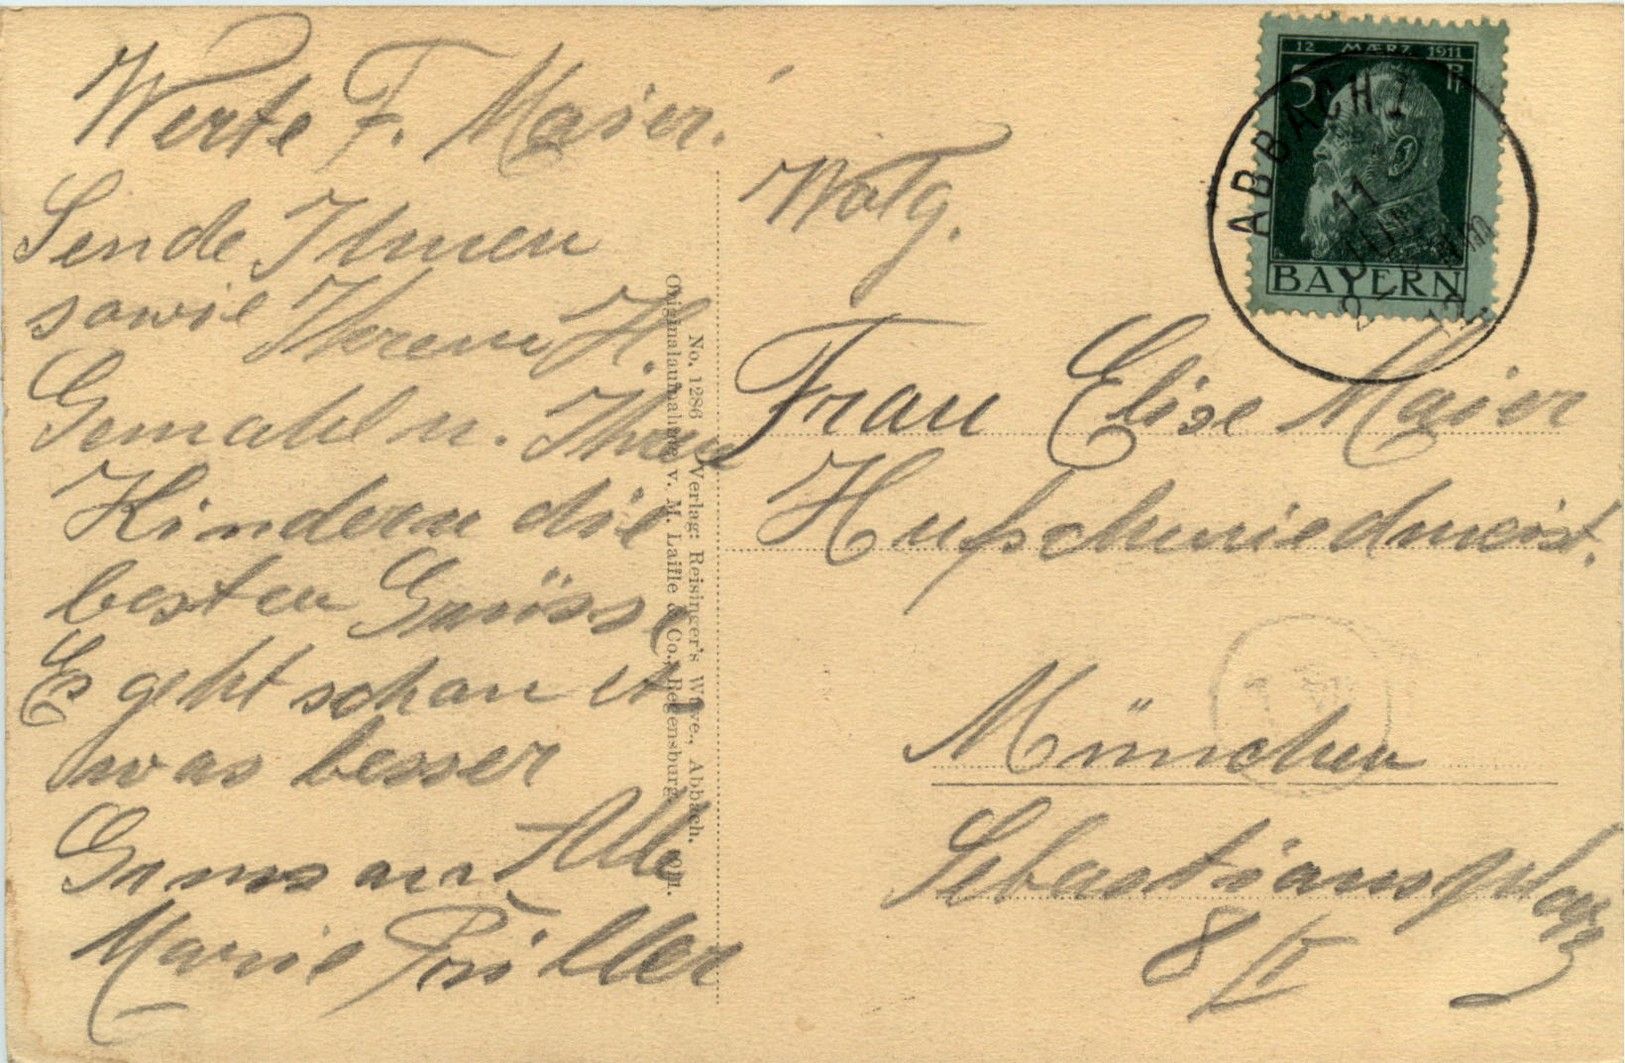 Werte F. Maier.
Sende Ihnen
sowie Ihrem H.
Gemahl u. Ihren
Kindern die
besten Grüsse
Es geht schon et
was besser
Gruss an Alle
Marie
No. 1286 Verlag: Reisinger's Wwe., Abbach.
Originalaufnahme v. M. Laifle & Co., Regensburg.
Wolg.
Frau Elise Maier
Hufschmiedmeist.
München
Sebastiansplatz
8/II
12 MÆRZ 1911
5 Pf
BAYERN
ABBACH 1
11
JUN